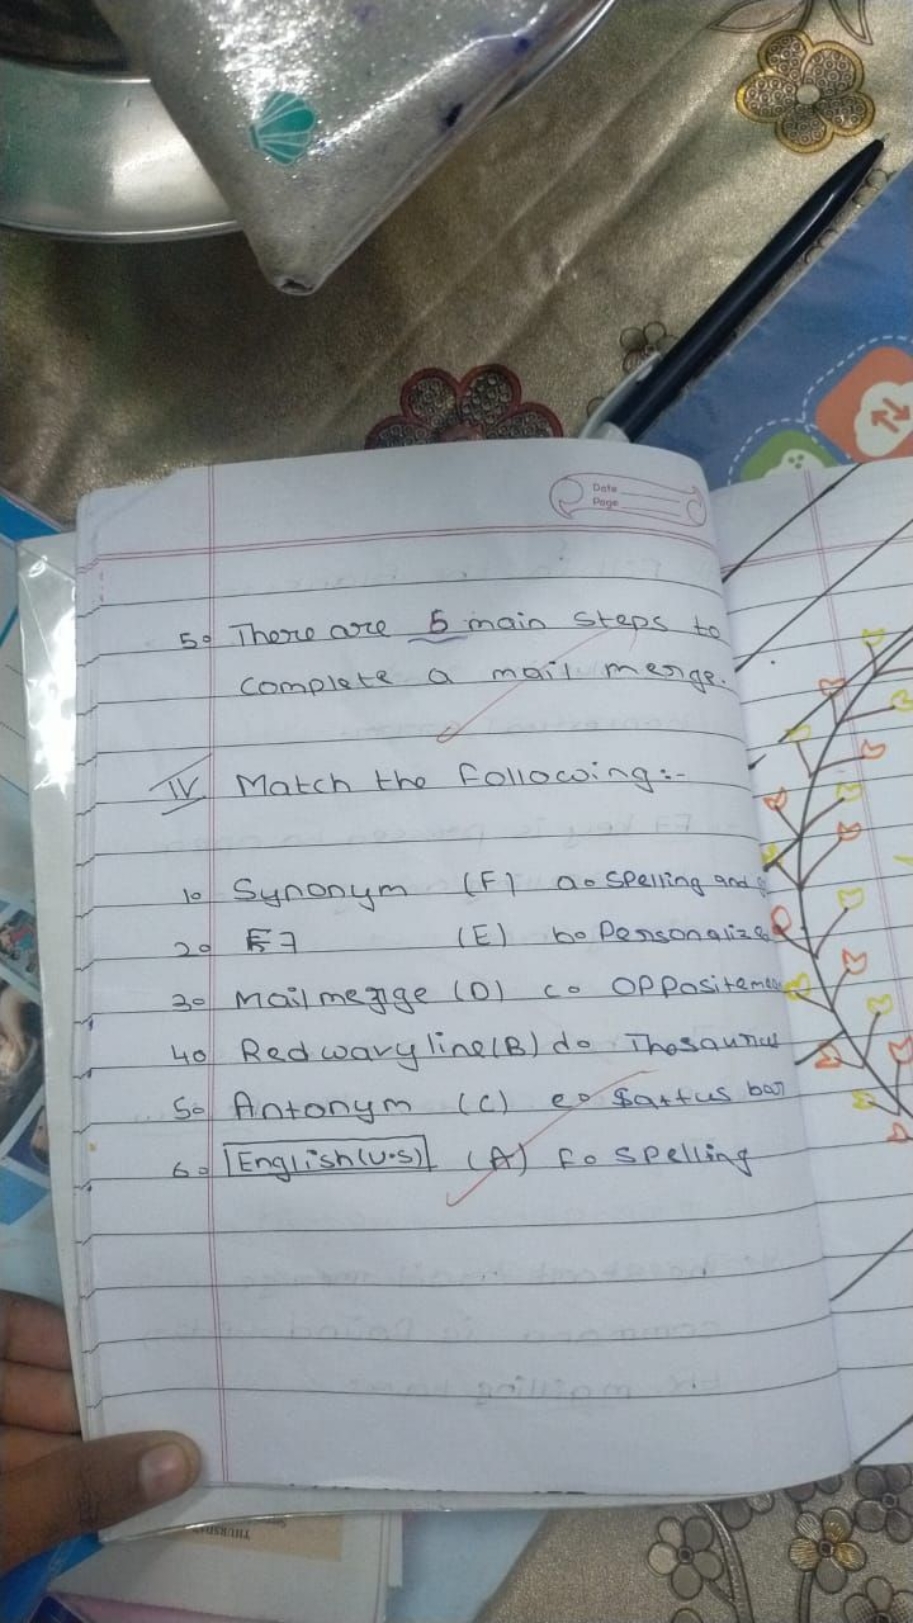 Date
Page
5. There are 5 main steps to
complete a mail merge.
IV Match the following:-
1. Synonym (F) a. Spelling and
2. F7 (E) b. Personalize
3. Mail merge (D) c. Opposite
4. Red wavy line (B) d. Thosaurus
5. Antonym (C) e. Sattus bar
6. English (U.S) (A) f. Spelling
THURSDA